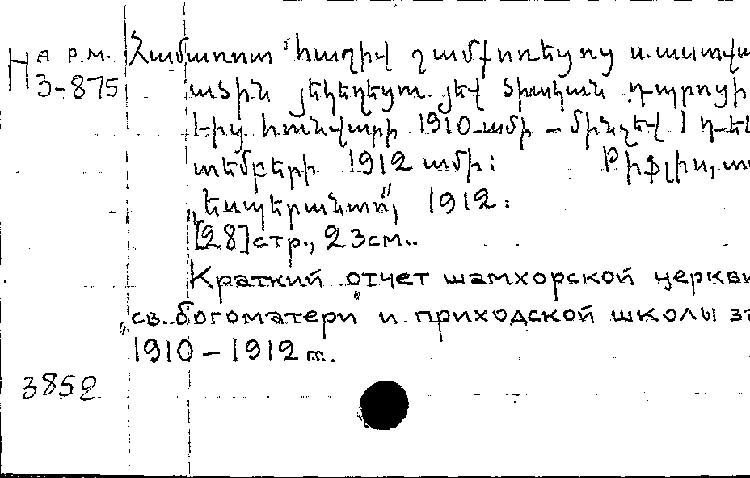 На рм.
3-875
Համառոտ հաշիվ շամքոռեցոց ս. աստվա
ածին յեկեղեցու յեվ ծխական դպրոցի
1-ից հունվարի 1910 ամի – մինչեվ 1 դեկ
տեմբերի 1912 ամի: Թիֆլիս, տ
„Եսպերանտո”, 1912:
[28]стр., 23см..
Краткий отчет шамхорской церкви
„св. богоматери” и приходской школы за
1910–1912 г.
3852